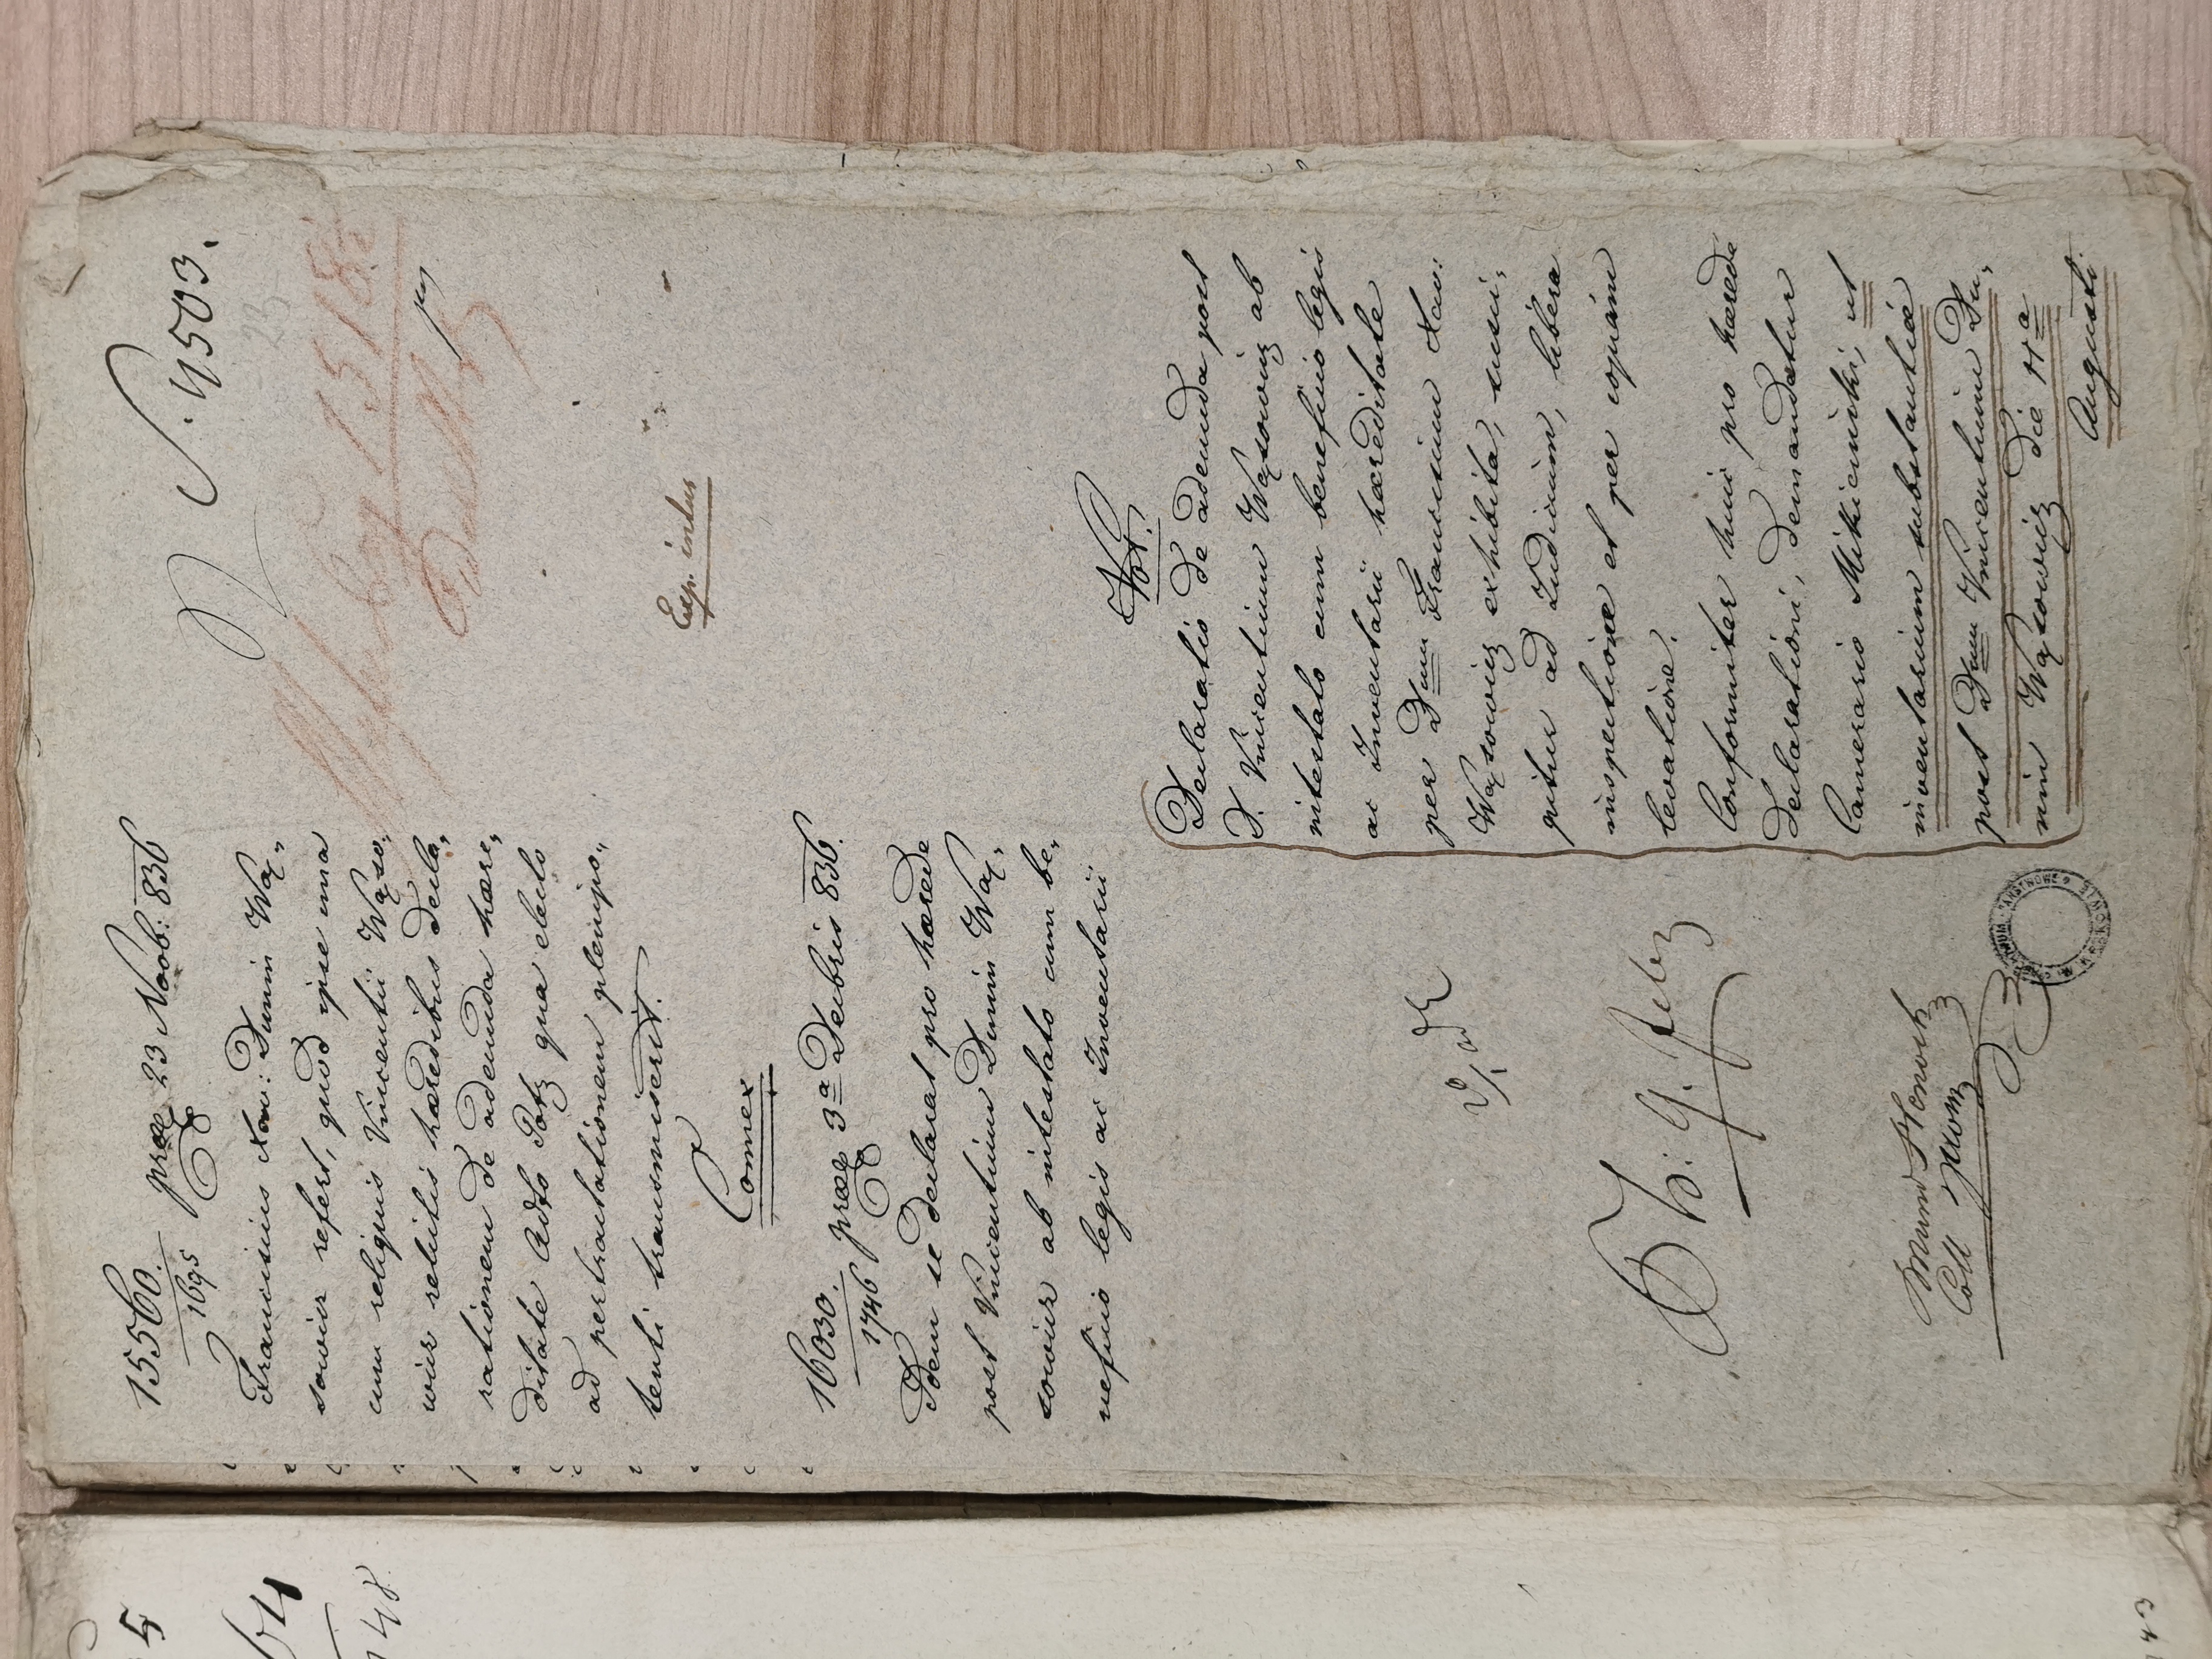 15560. præs 23 Novb: 836
1695
Franciscus Xav: Dunin Wą„
sowicz refert, quod ipse una
cum reliquis Vincentii Wąso„
wicz relictis hæredibus decla„
rationem de adeunda hære„
ditate Adto Potz qua electo
ad pertractationem plenipo„
tenti transmiserit.
Connex
16030. præs 3ª Decbris 836.
1746
Idem se declarat pro hærede
post Vincentium Dunin Wą„
sowicz ab intestato cum be„
neficio legis ac Inventarii
V. adz
Mündl
Coll
S. 4503.
15185
Exp. intus
Not:
Declaratio de adeunda post
D. Vincentium Wąsowicz ab
intestato cum beneficio legis
ac Inventarii hæreditate
per Dnum Franciscum Xav:
Wąsowicz exhibita, susci„
pitur ad Judicium, libera
inspectione et per copiam
levatione.
Conformiter huic pro hærede
declarationi, demandatur
Camerario Mikiciński, ut
inventarium substantiæ
post Dnum Vincentium Du„
nin Wąsowicz die 14ª
Augusti
5
64
748
43